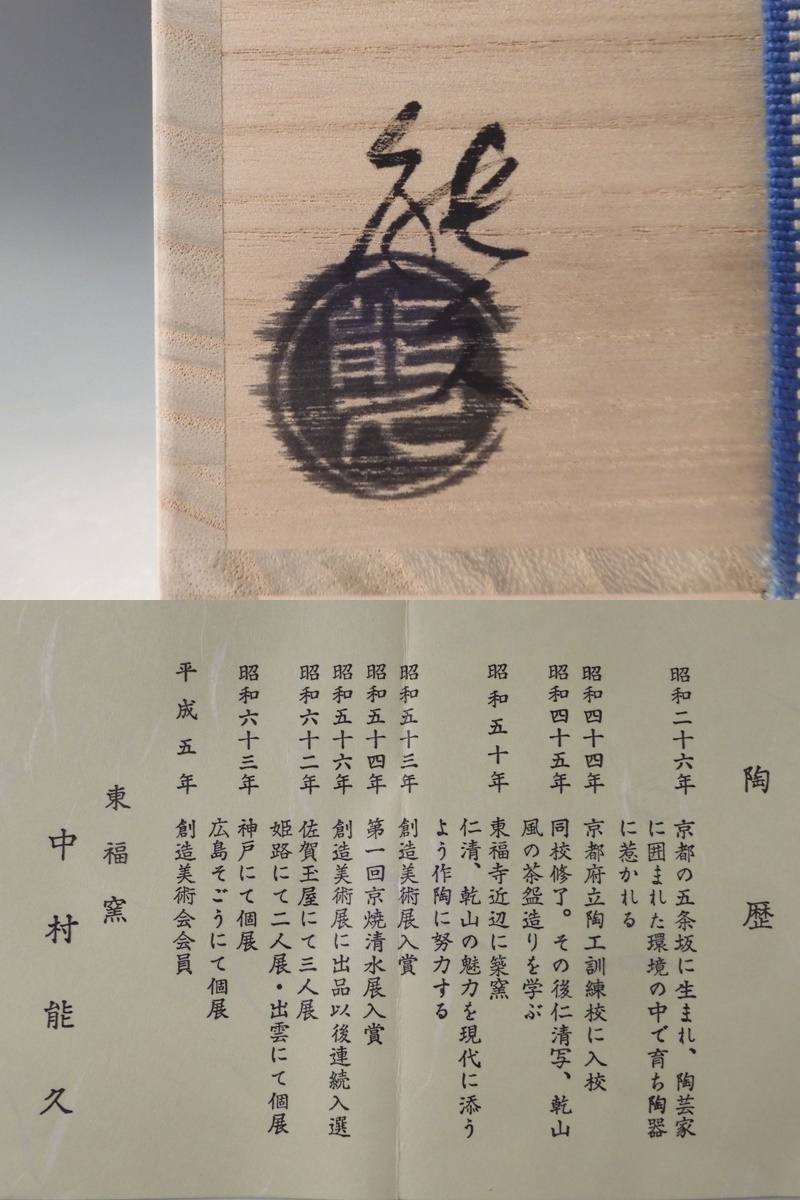 能久
能久
陶歴
昭和二十六年 京都の五条坂に生まれ、陶芸家
に囲まれた環境の中で育ち陶器
に惹かれる
昭和四十四年 京都府立陶工訓練校に入校
昭和四十五年 同校修了。その後仁清写、乾山
風の茶盌造りを学ぶ
昭和五十年 東福寺近辺に築窯
仁清、乾山の魅力を現代に添う
よう作陶に努力する
昭和五十三年 創造美術展入賞
昭和五十四年 第一回京焼清水展入賞
昭和五十六年 創造美術展に出品以後連続入選
昭和六十二年 佐賀玉屋にて三人展
姫路にて二人展・出雲にて個展
昭和六十三年 神戸にて個展
広島そごうにて個展
平成五年 創造美術会会員
東福窯
中村能久